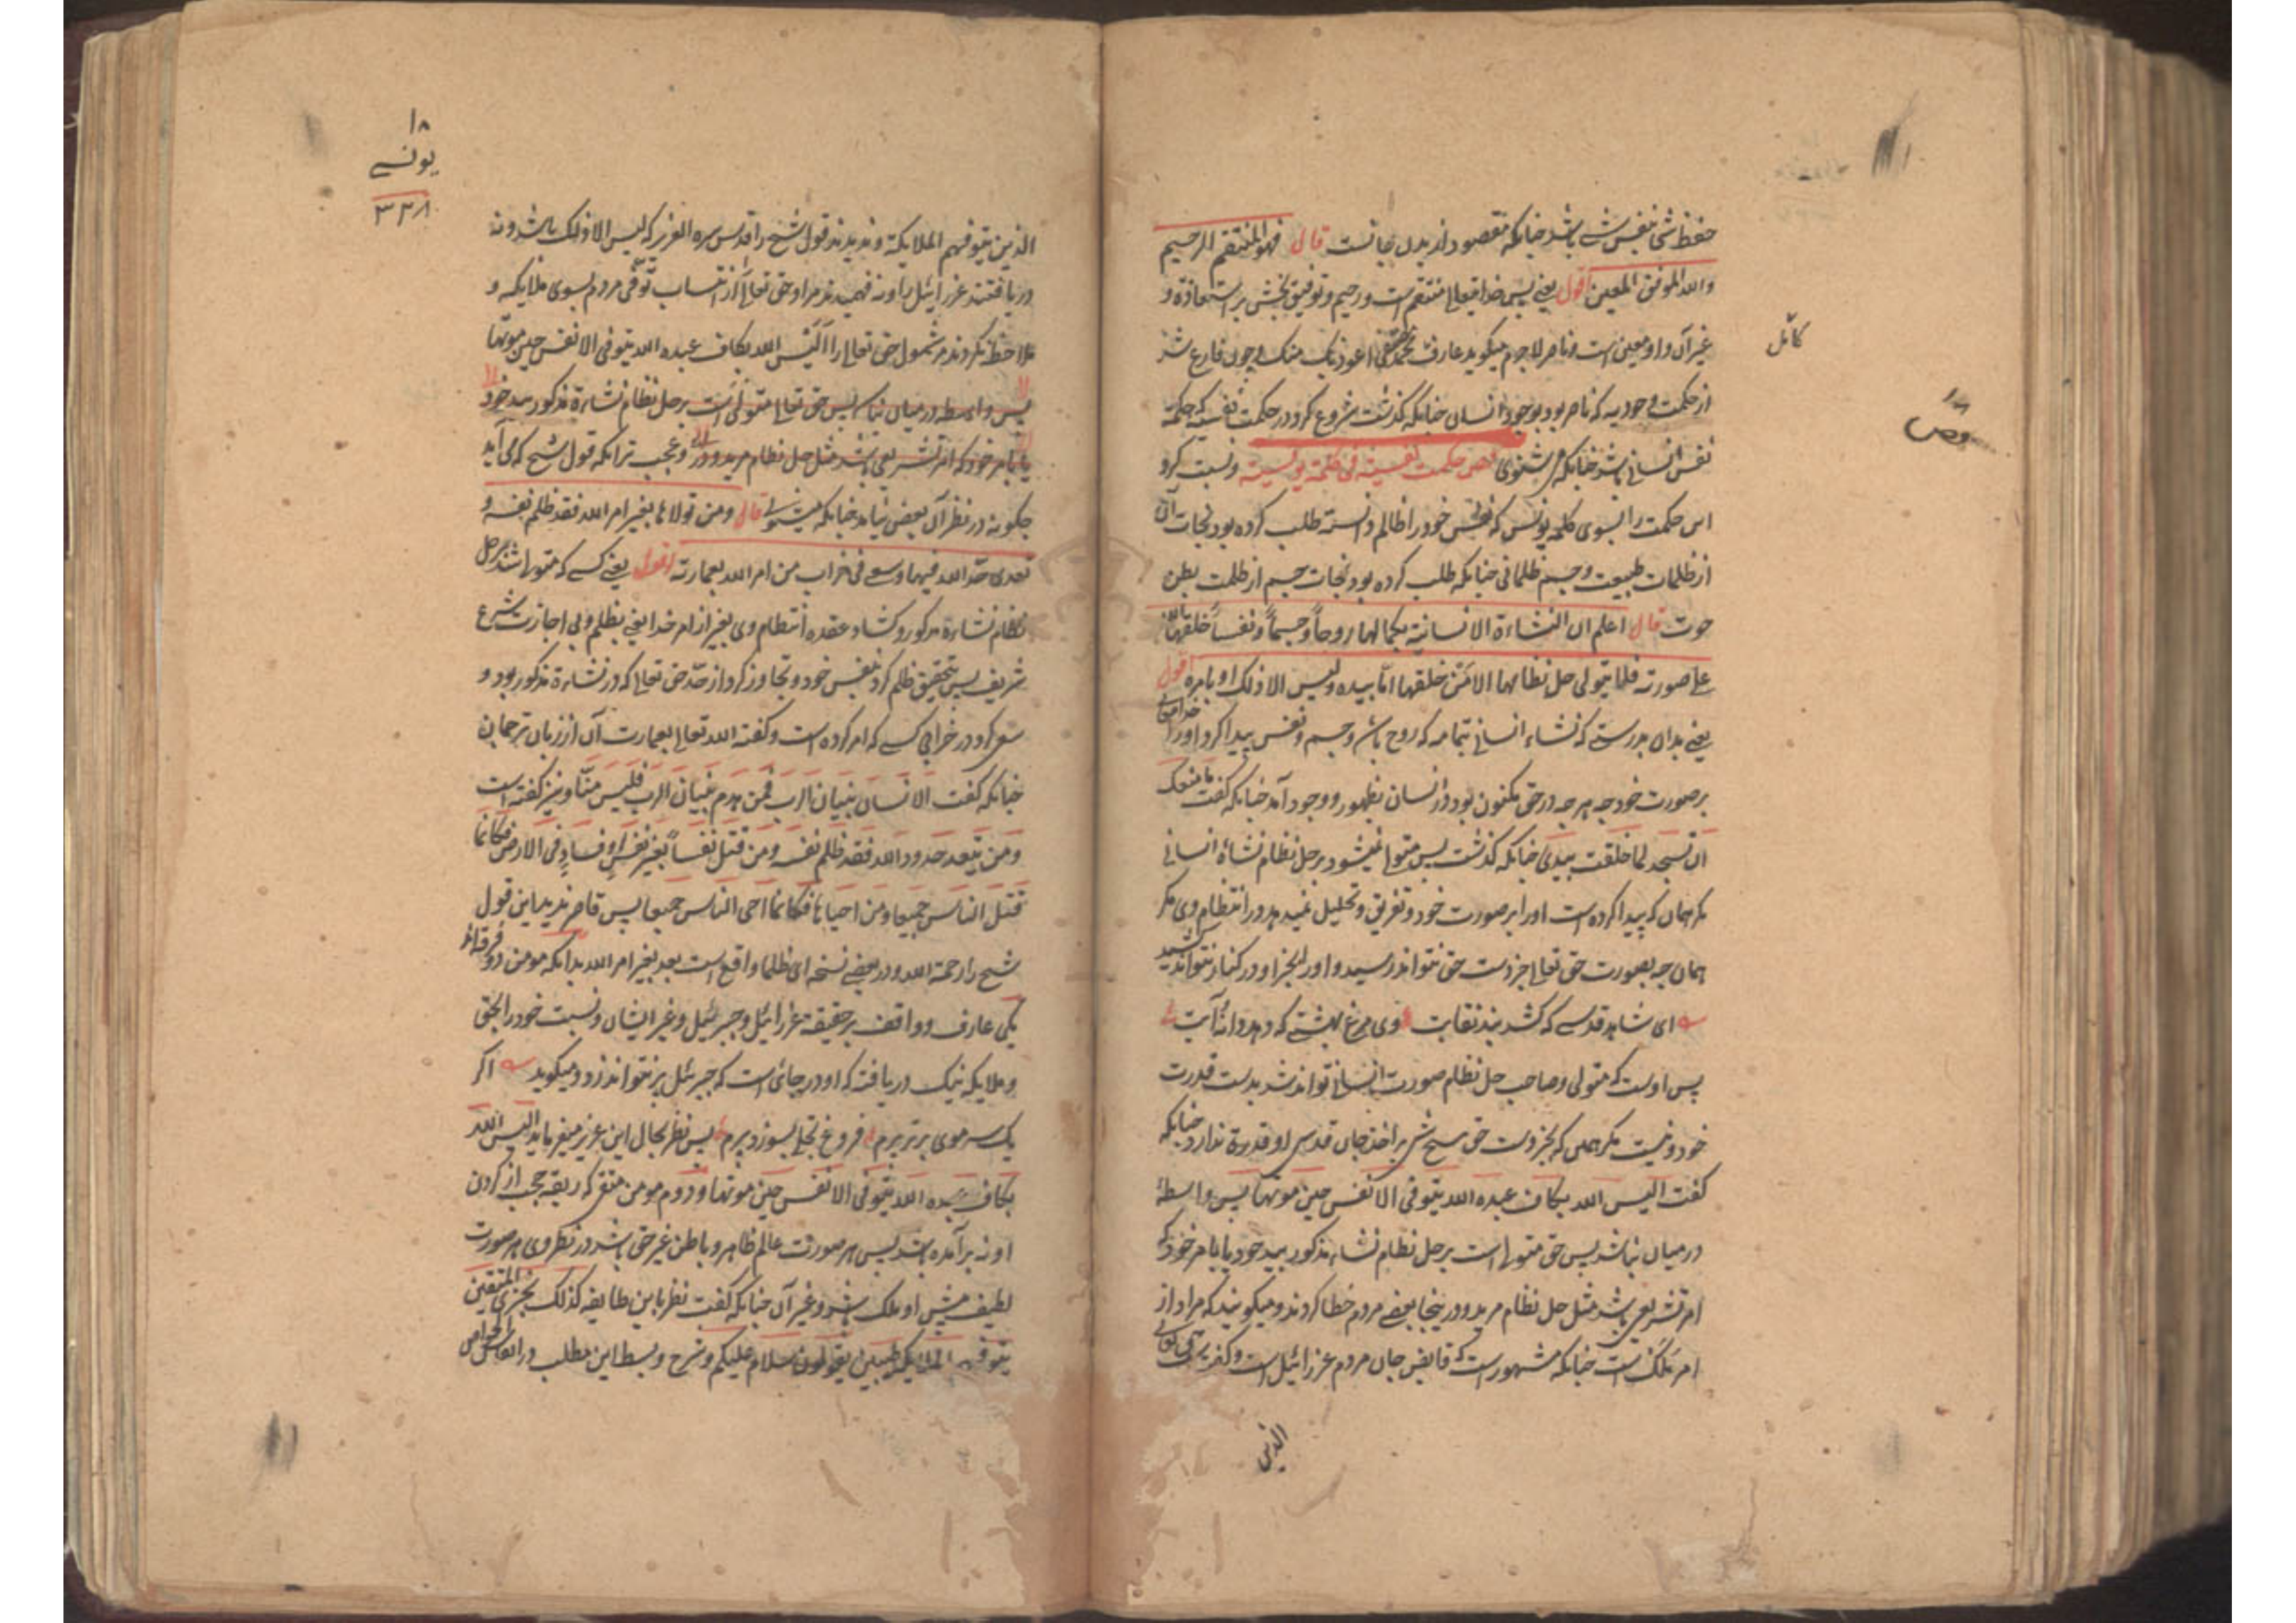 حفظ شخا بنفس شے باشد چنانکه مقصود از بدل جانست قال فهو المنتقم الرحیم
والله الموفق المعین اقول یعنی پس خدا تعالی منتقم است و رحیم و توفیق بخش بر استعاذه و
غیر آن و او معین است و ناصر لاجرم میگوید عارف اعوذ بک منک و چون فارغ شد
از حکمت وجودیه که ناصر بود بوجود انسان چنانکه گذشت شروع کرد در حکمت نفسیه که حکمت
نفس انسانی باشد چنانکه می شنوی فص حکمت نفسیة فی کلمة یونسیة و نسبت کرد
این حکمت را بسوی کلمه یونس که نفس خود را ظالم دانسته طلب کرده بود نجات آن
از ظلمات طبیعت و جسم ظلمانی چنانکه طلب کرده بود نجات جسم از ظلمت بطن
حوت قال اعلم ان النشاءة الانسانیة بکمالها روحاً و جسماً و نفساً خلقها الله
علی صورته فلا یتولی حل نظامها الا من خلقها اما بیده ولیس الا ذلک او بامره اقول
یعنی بدان بدرستی که نشاء انسانی بتمامه که روح باشد و جسم و نفس پیدا کرد او را خدا تعالی
بر صورت خود چه هر چه در حق مکنون بود در انسان بظهور و وجود آمد چنانکه گفت ما منعک
ان تسجد لما خلقت بیدی چنانکه گذشت پس متولی نمیشود بر حل نظام نشاة انسانی
مگر همان که پیدا کرده است او را بر صورت خود و تفریق و تحلیل نمیدهد در انتظام وی مگر
همان چه بصورت حق تعالی جز دست حق نتواند رسید و او را بجز او در کنار نتواند کشید
ای شاهد قدسی که کشد بند نقابت وی مرغ بهشتی که دهد دانه و آبت
پس اوست که متولی و صاحب حل نظام صورت انسانی تواند شد بدست قدرت
خود و نیست مگر همی که بجز دست حق هیچ شی بر اخذ جان قدسی او قدرة ندارد چنانکه
گفت الیس الله بکاف عبده الله یتوفی الانفس حین موتها پس واسطهٔ
در میان نباشد پس حق متولی است بر حل نظام نشاء مذکور بید خود یا بامر خود که
امر تشریعی باشد مثل حل نظام مرید و در ینجا بعضی مردم خطا کردند و میگویند که مراد از
امر ملک است چنانکه مشهور است که قابض جان مردم عزرائیل است و گفت حق تعالی
الذین
کامل
۱۸
فص
۱۸
یونسے
۳۳۸
الذین یتوفیهم الملایکة و ندیدند قول شیخ را قدس سره العزیز که لیس الا ذلک باشد و نه
دریافتند عزرائیل را و نه فهمیدند مراد حق تعالی از انتساب توفی مردم بسوی ملایکه و
ملاحظه نکردند مر شمول حق تعالی را الیس الله بکاف عبده الله یتوفی الانفس حین موتها
پس واسطه در میان نباشد پس حق تعالی متولی است بر حل نظام نشاءة مذکور بید خود
یا بامر خود که امر تشریعی باشد مثل حل نظام مرید و در و عجب تر آنکه قول شیخ که می آید
چگونه در نظر آن بعض نیامد چنانکه میشنوی قال ومن تولاها بغیر امر الله فقد ظلم نفسه و
تعدی حد الله فیها و سعی فی خراب من امر الله بعمارته اقول یعنی کسی که متولی شد بر حل
نظام نشاءة مذکور و کشاد عقده انتظام وی بغیر از امر خدا یعنی بظلم و بی اجازت شرع
شریف پس بتحقیق ظلم کرد بنفس خود و تجاوز کرد از حد حق تعالی که در نشاءة مذکور بود و
سعی کرد در خرابی کسی که امر کرده است و گفته الله تعالی بعمارت آن از زبان ترجمان
چنانکه گفت الانسان بنیان الرب فمن هدم بنیان الرب فلیس منا و نیز گفته است
ومن یتعد حدود الله فقد ظلم نفسه ومن قتل نفساً بغیر نفس او فساد فی الارض فکانما
قتل الناس جمیعا ومن احیاها فکانما احی الناس جمیعا پس قاصر ندید این قول
شیخ را رحمة الله و در بعضی نسخه ای ظلما واقع است بعد بغیر امر الله بدانکه مومن دو فرقه اند
یکی عارف و واقف بر حقیقة عزرائیل و جبرئیل و غیر ایشان و نسبت خود را بحق
و ملایکه نیک دریافته که او در جائی است که جبرئیل پر نتواند زد و میگوید اکر
یک سر موی برتر پرم فروغ تجلی بسوزد پرم پس نظر بحال این عزیز میفرماید الیس الله
بکاف عبده الله یتوفی الانفس حین موتها و دوم مومن متقی که ربقه حجب از گردن
او نه برآمده باشد پس هر صورت عالم ظاهر و باطن غیر حق باشد در نظر وی هر صورت
لطیف پیش او ملک باشد و غیر آن چنانکه گفت نظر باین طایفه کذلک یجزی المتقین
یتوفیهم الملایکة طیبین یقولون سلام علیکم و شرح و بسط این مطلب در انفاس الخواص